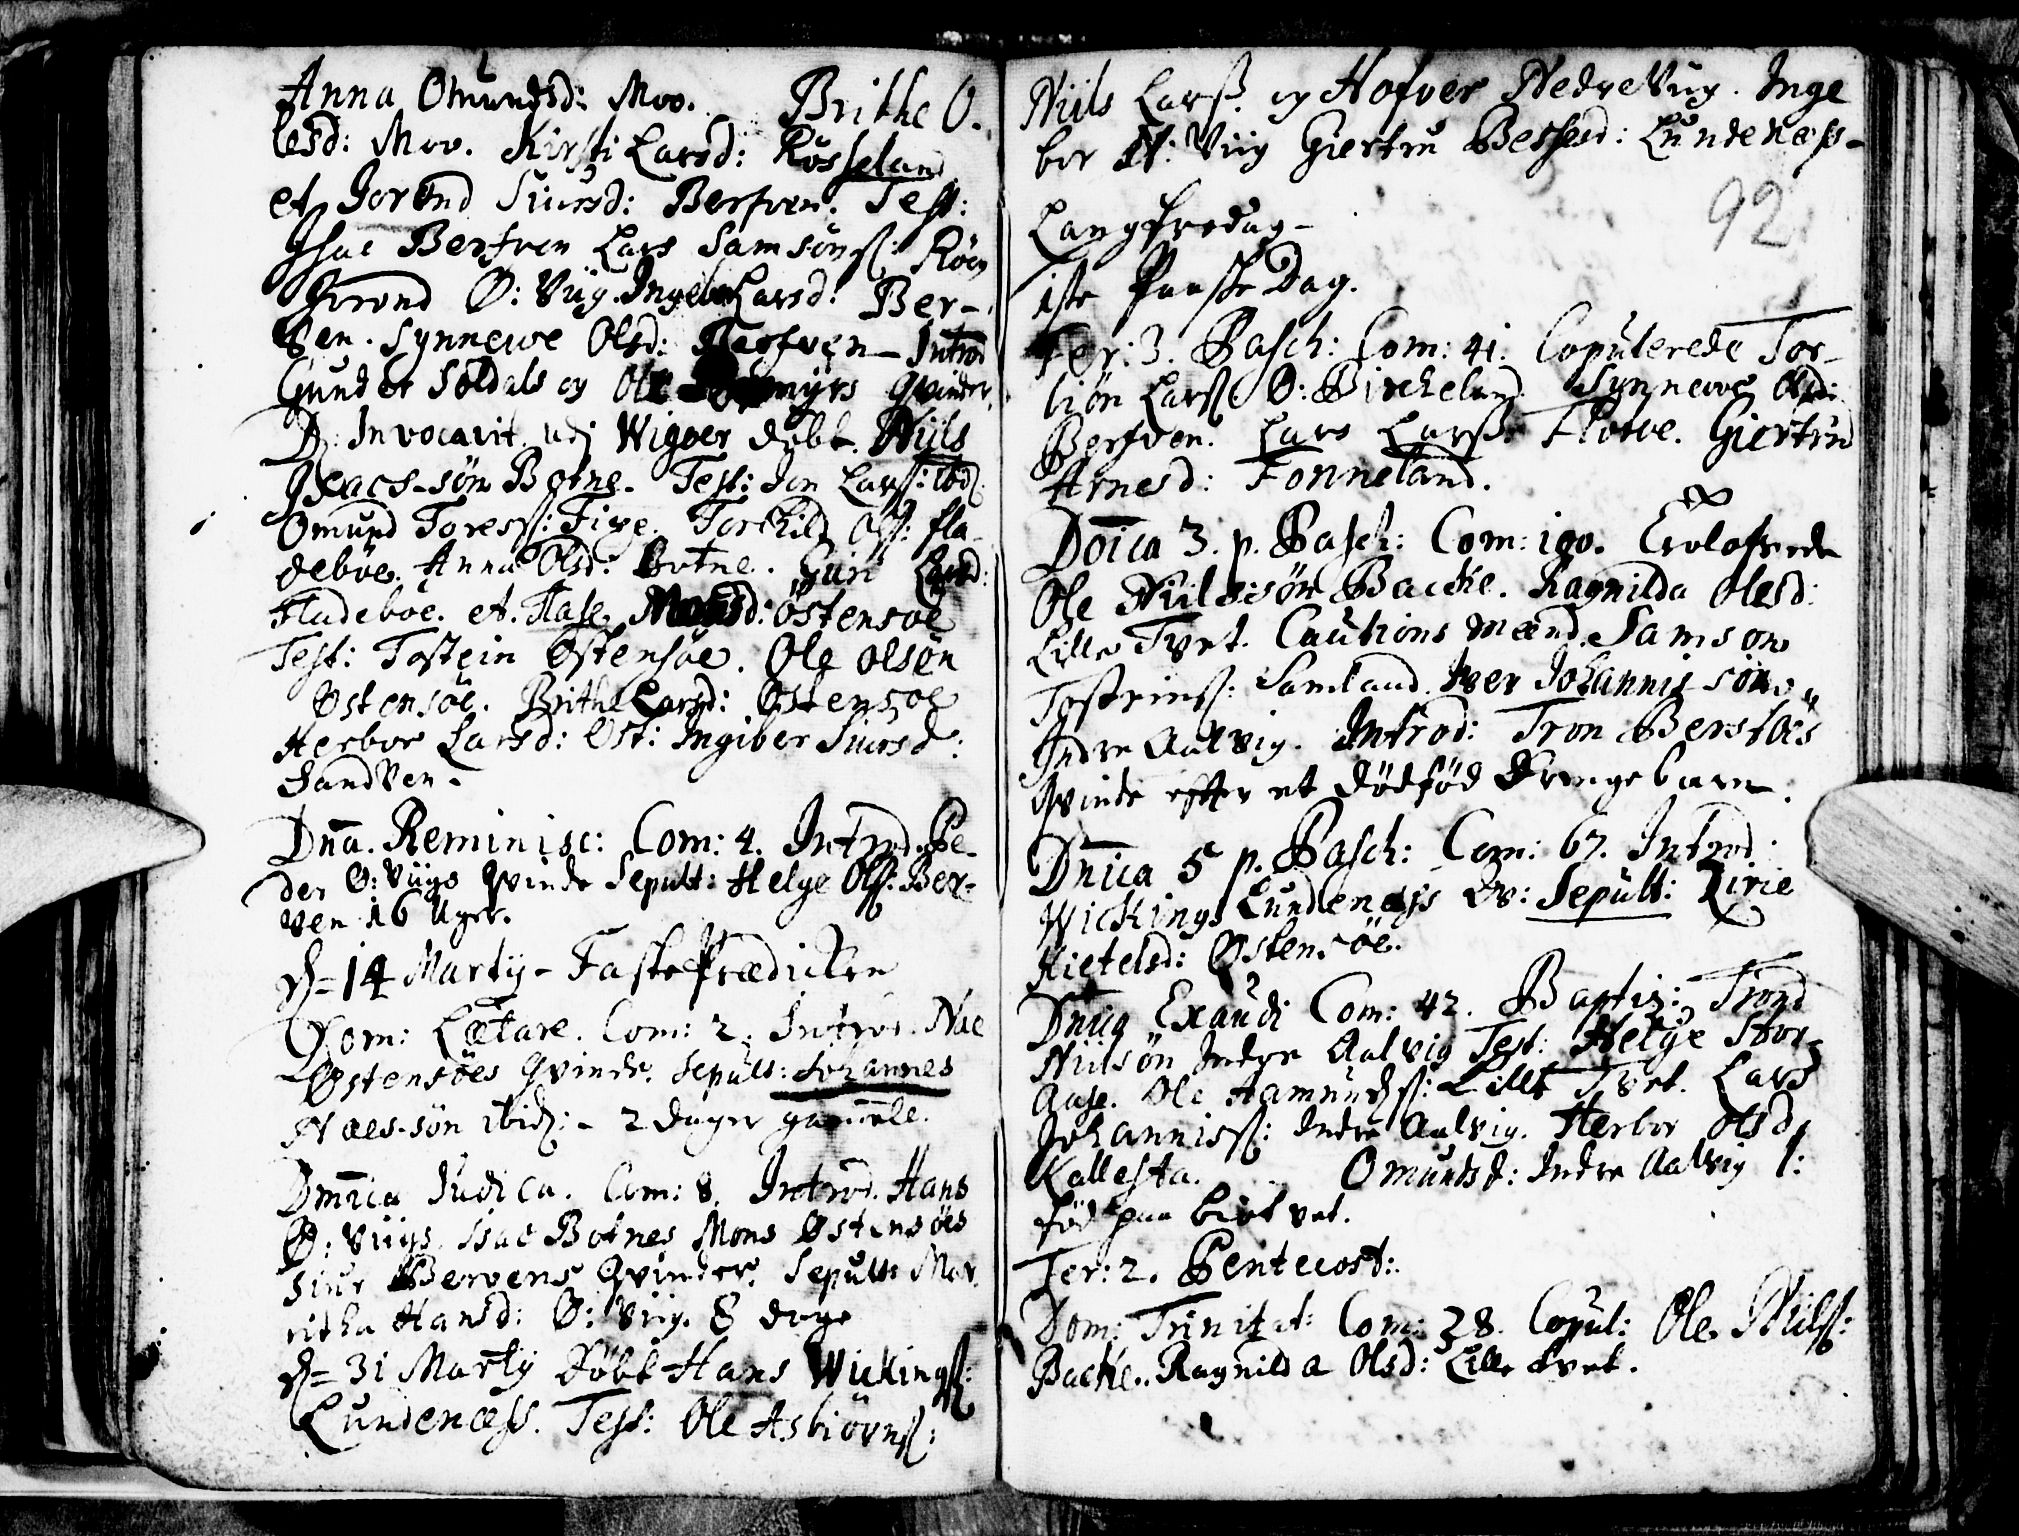 Anna Omundsd: Moo. Brithe O.
lesd: Moo. Kirsti Larsd: Rosseland
et Jorond Siursd: Berfven. Test:
Isac Berfven Lars Samsönß: Röen
Jorond Ø: Viig. Ingebor Larsd: Ber-
ven. Synnewe Olsd: Berfven - Introd
Gunder Soldals og Ole qvinder.
D: Invocavit udj Wigöer döbt Niils
Isacs-sön Botne. Test: Jon Larsß: ibid.
Omund Toresß: Fixe. Torchild Olß: Fla-
deböe. Anna Olsd: Botne. Guri Larsd:
Fladeböe. et. Aase Monsd: Östensöe
Test: Tostein Østensöe. Ole olsön
Østensöe. Brithe Larsd: Østensöe
Herbor Larsd: Øst: Ingiber Siursd:
Sandven.
Dnā. Reminisc: Com: 4. Introd. Pe-
der Ø: Viigs qvinde Sepult: Helge Olß: Ber-
ven 16 Uger.
d= 14 Martij - Faste Prædicken
Dom: Lætare. Com: 2. Introd. Nae
Østensöes qvinde. Sepult: Johannes
Naes-sön ibid: - 2 dager gamele.
Dmīca Judica. Com: 8. Introd. Hans
Ø: Viigs. Isac Botnes Mons Østensöes
Siur Bervens qvinder. Sepult: Mar-
ritha Hansd: Ø: Viig. 8 dage
d= 31 Martij Döbt Hans Wickingß:
Lundenæss. Test: Ole Asbiörnß:
Niils Larß. og Hofver Nedre Viig. Inge
bor N: Viig Giertru Bessesd: Lundenæss-
92
Langfredag-
1ste Paaske Dag.
Fer: 3. Pasch: Com: 41. Copulerede Tor-
biön Larß Ø: Birckeland Synnewe Olsd:
Berfven. Lars Larß: Flotve. Giertrud
Arnesd: Fonneland.
Doīca 3. p. Pasch: Com: 190. Trolofvede
Ole Niilssön Backe. Ragnilda Olesd:
Lille Tvet. Cautions mænd. Samson
Tosteinß: Samland. Iver Johannis sön
Indre Aalvig. Introd: Tron Berstöes
qvinde efter et dödföd drengebarn.
Dnīca 5 p. Pasch: Com: 67. Introd:
Wickings Lundenæss Qv: Sepult: Zirie
Kietelsd: Østensöe.
Dnīca Exaudi Com: 42. Baptiz: Trond
Niilsön Indre Aalvig Test: Helge Stor-
Aase. Ole Aamundsß: Lille Tvet. Lars
Johannisß: Indre Aalvig. Herbor Olsd
Kallesta. Omundsd: Indre Aalvig /:
föd paa birkvet.
Fer: 2. Pentecost:
Dom: Trinitat: Com: 38. Copul: Ole Niilß:
Backe. Ragnilda Olsd: Lille Tvet.